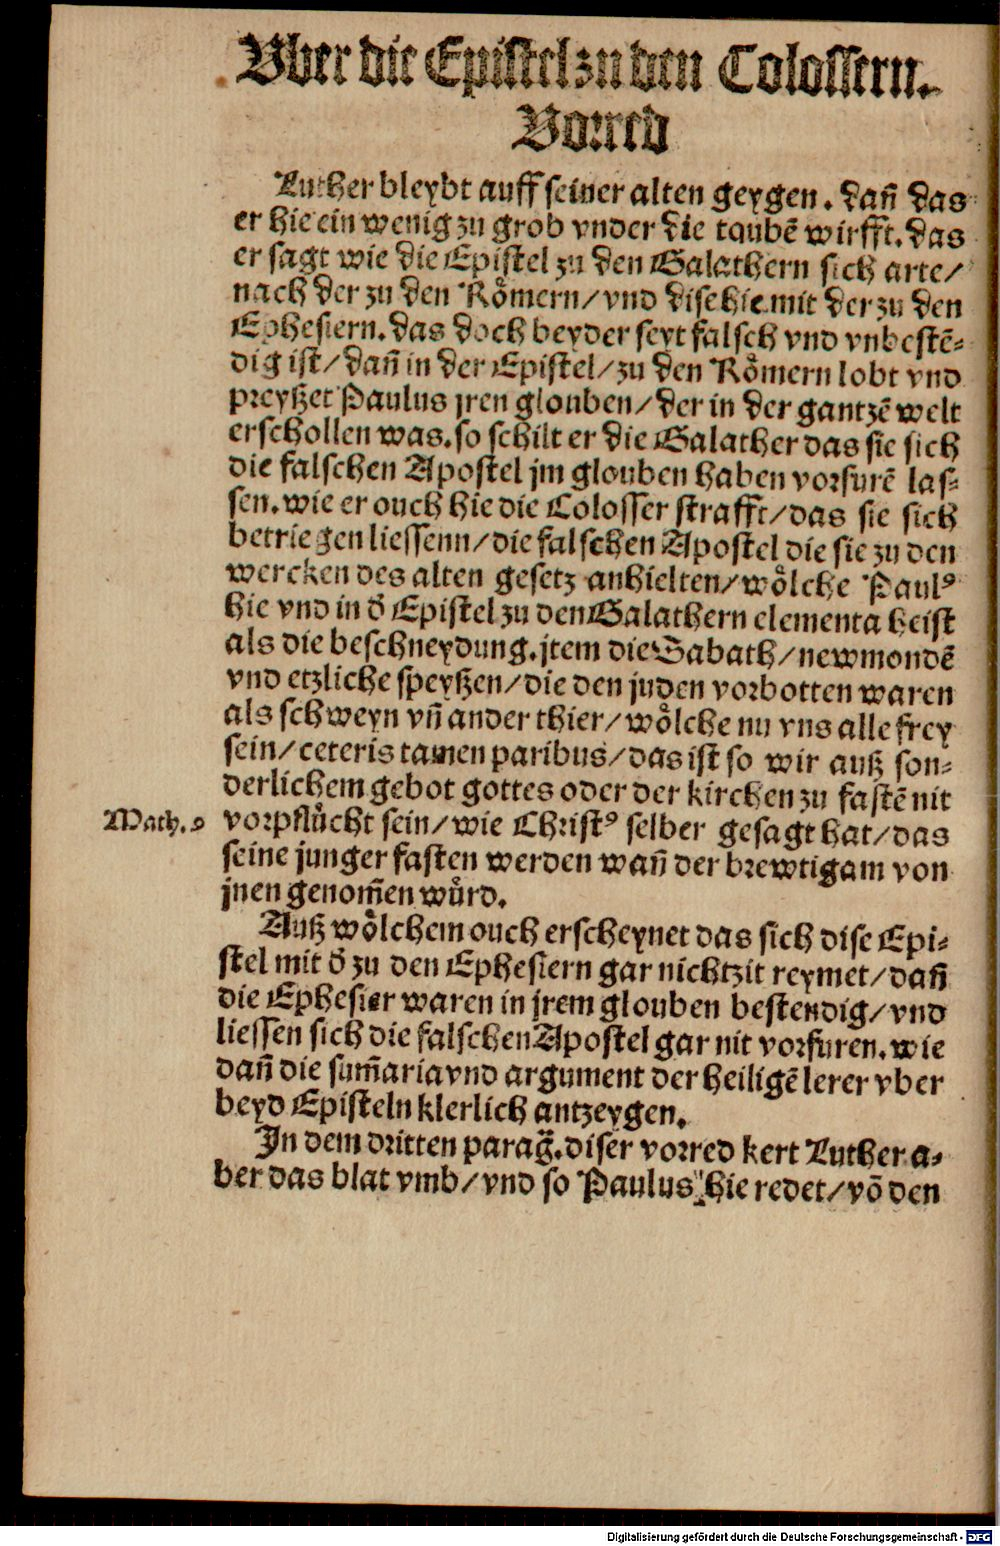 Vber die Epistel zu den Colossern.
Vorred
Luther bleybt auff seiner alten geygen. dañ das
er hie ein wenig zu grob vnder die taubē wirfft. das
er sagt wie die Epistel zu den Galathern sich arte/
nach der zu den Roͤmern/ vnd dise hie mit der zu den
Ephesiern. das doch beyder seyt falsch vnd vnbestē-
dig ist/ dañ in der Epistel/ zu den Roͤmern lobt vnd
preyßet Paulus jren glouben/ der in der gantzē welt
erschollen was. so schilt er die Galather das sie sich
die falschen Apostel jm glouben haben vorfurē las-
sen. wie er ouch hie die Colosser strafft/ das sie sich
betriegen liessenn/ die falschen Apostel die sie zu den
wercken des alten gesetz anhielten/ woͤlche Paulꝰ
hie vnd in d̄ Epistel zu den Galathern elementa heist
als die beschneydung. jtem die Sabath/ newmondē
vnd etzliche speyßen/ die den juden vorbotten waren
als schweyn vñ ander thier/ woͤlche nu vns alle frey
sein/ ceteris tamen paribus/ das ist so wir auß son-
derlichem gebot gottes oder der kirchen zu fastē nit
Math. 9 vorpfluͤcht sein/ wie Christꝰ selber gesagt hat/ das
seine junger fasten werden wañ der brewtigam von
jnen genom̃en wuͤrd.
Auß woͤlchem ouch erscheynet das sich dise Epi-
stel mit d̄ zu den Ephesiern gar nichtzit reymet/ dañ
die Ephesier waren in jrem glouben bestendig/ vnd
liessen sich die falschen Apostel gar nit vorfuren. wie
dañ die sum̃aria vnd argument der heiligē lerer vber
beyd Episteln klerlich antzeygen.
In dem dritten parag̃. diser vorred kert Luther a-
ber das blat vmb/ vnd so Paulus hie redet/ vō den
Digitalisierung gefördert durch die Deutsche Forschungsgemeinschaft - DFG